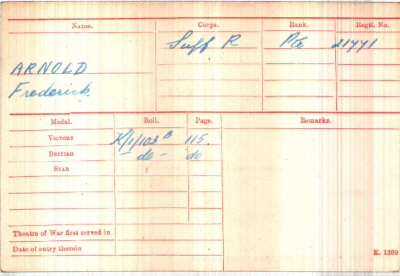 Name. Corps. Rank. Regtl. No.
Suff R Pte 21771
ARNOLD
Frederick
Medal. Roll. Page. Remarks.
Victory K/1/103 B 115.
British do - do
Star
Theatre of War first served in
Date of entry therein
K. 1380